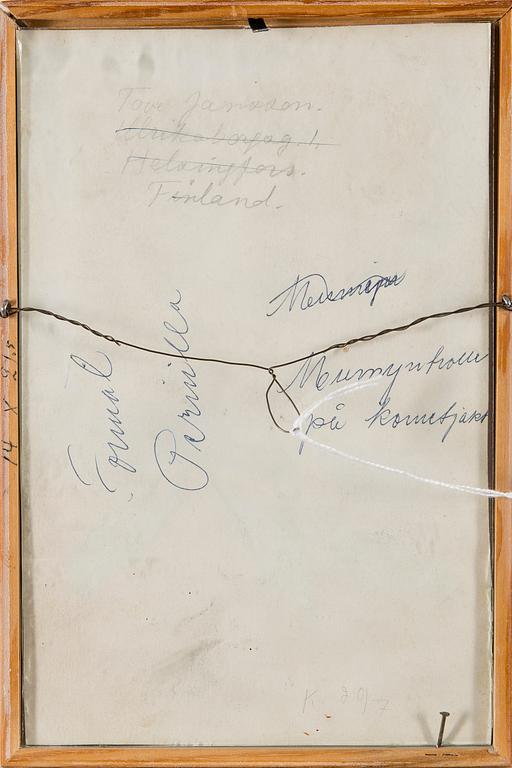 Tove Jansson.
Ulrikaborgsg. 1.
Helsingfors.
Finland.
Mumintroll
på kometjakt
Format
Pernilla
14 X
K